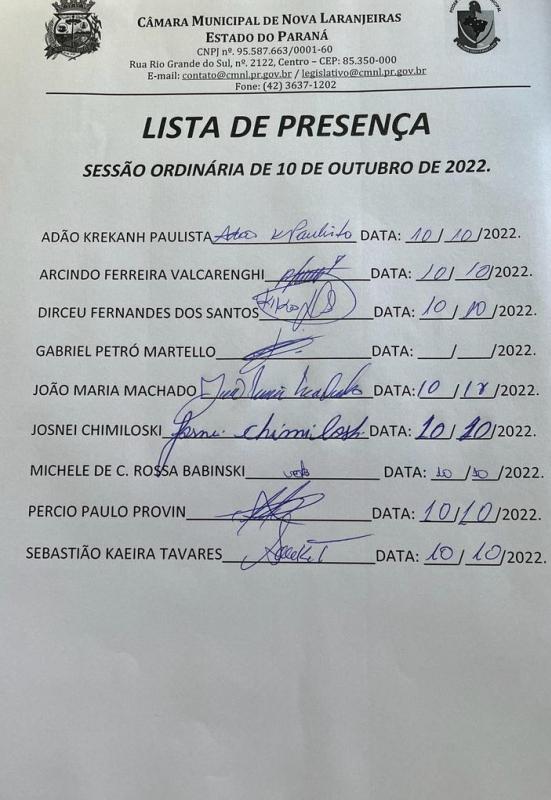 CÂMARA MUNICIPAL DE NOVA LARANJEIRAS
ESTADO DO PARANÁ
CNPJ nº. 95.587.663/0001-60
Rua Rio Grande do Sul, nº. 2122, Centro – CEP: 85.350-000
E-mail: contato@cmnl.pr.gov.br / legislativo@cmnl.pr.gov.br
Fone: (42) 3637-1202
LISTA DE PRESENÇA
SESSÃO ORDINÁRIA DE 10 DE OUTUBRO DE 2022.
ADÃO KREKANH PAULISTA Adão K Paulista DATA: 10/10/2022.
ARCINDO FERREIRA VALCARENGHI DATA: 10/10/2022.
DIRCEU FERNANDES DOS SANTOS DATA: 10/10/2022.
GABRIEL PETRÓ MARTELLO DATA: ___/___/2022.
JOÃO MARIA MACHADO DATA: 10/ /2022.
JOSNEI CHIMILOSKI Josnei Chimiloski DATA: 10/10/2022.
MICHELE DE C. ROSSA BABINSKI DATA: 10/10/2022.
PERCIO PAULO PROVIN DATA: 10/10/2022.
SEBASTIÃO KAEIRA TAVARES DATA: 10/10/2022.